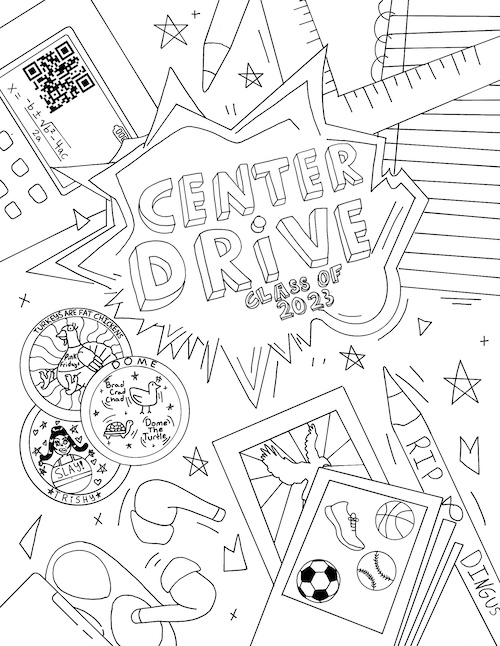 x = -b ± √b² - 4ac
2a
CENTER
DRIVE
CLASS OF
2023
TURKEYS ARE FAT CHICKENS
Pink
Friday!
DOME
Brad
Crad
Chad
Dome
The
Turtle
SLAY!
TRISHY
RIP
DINGUS